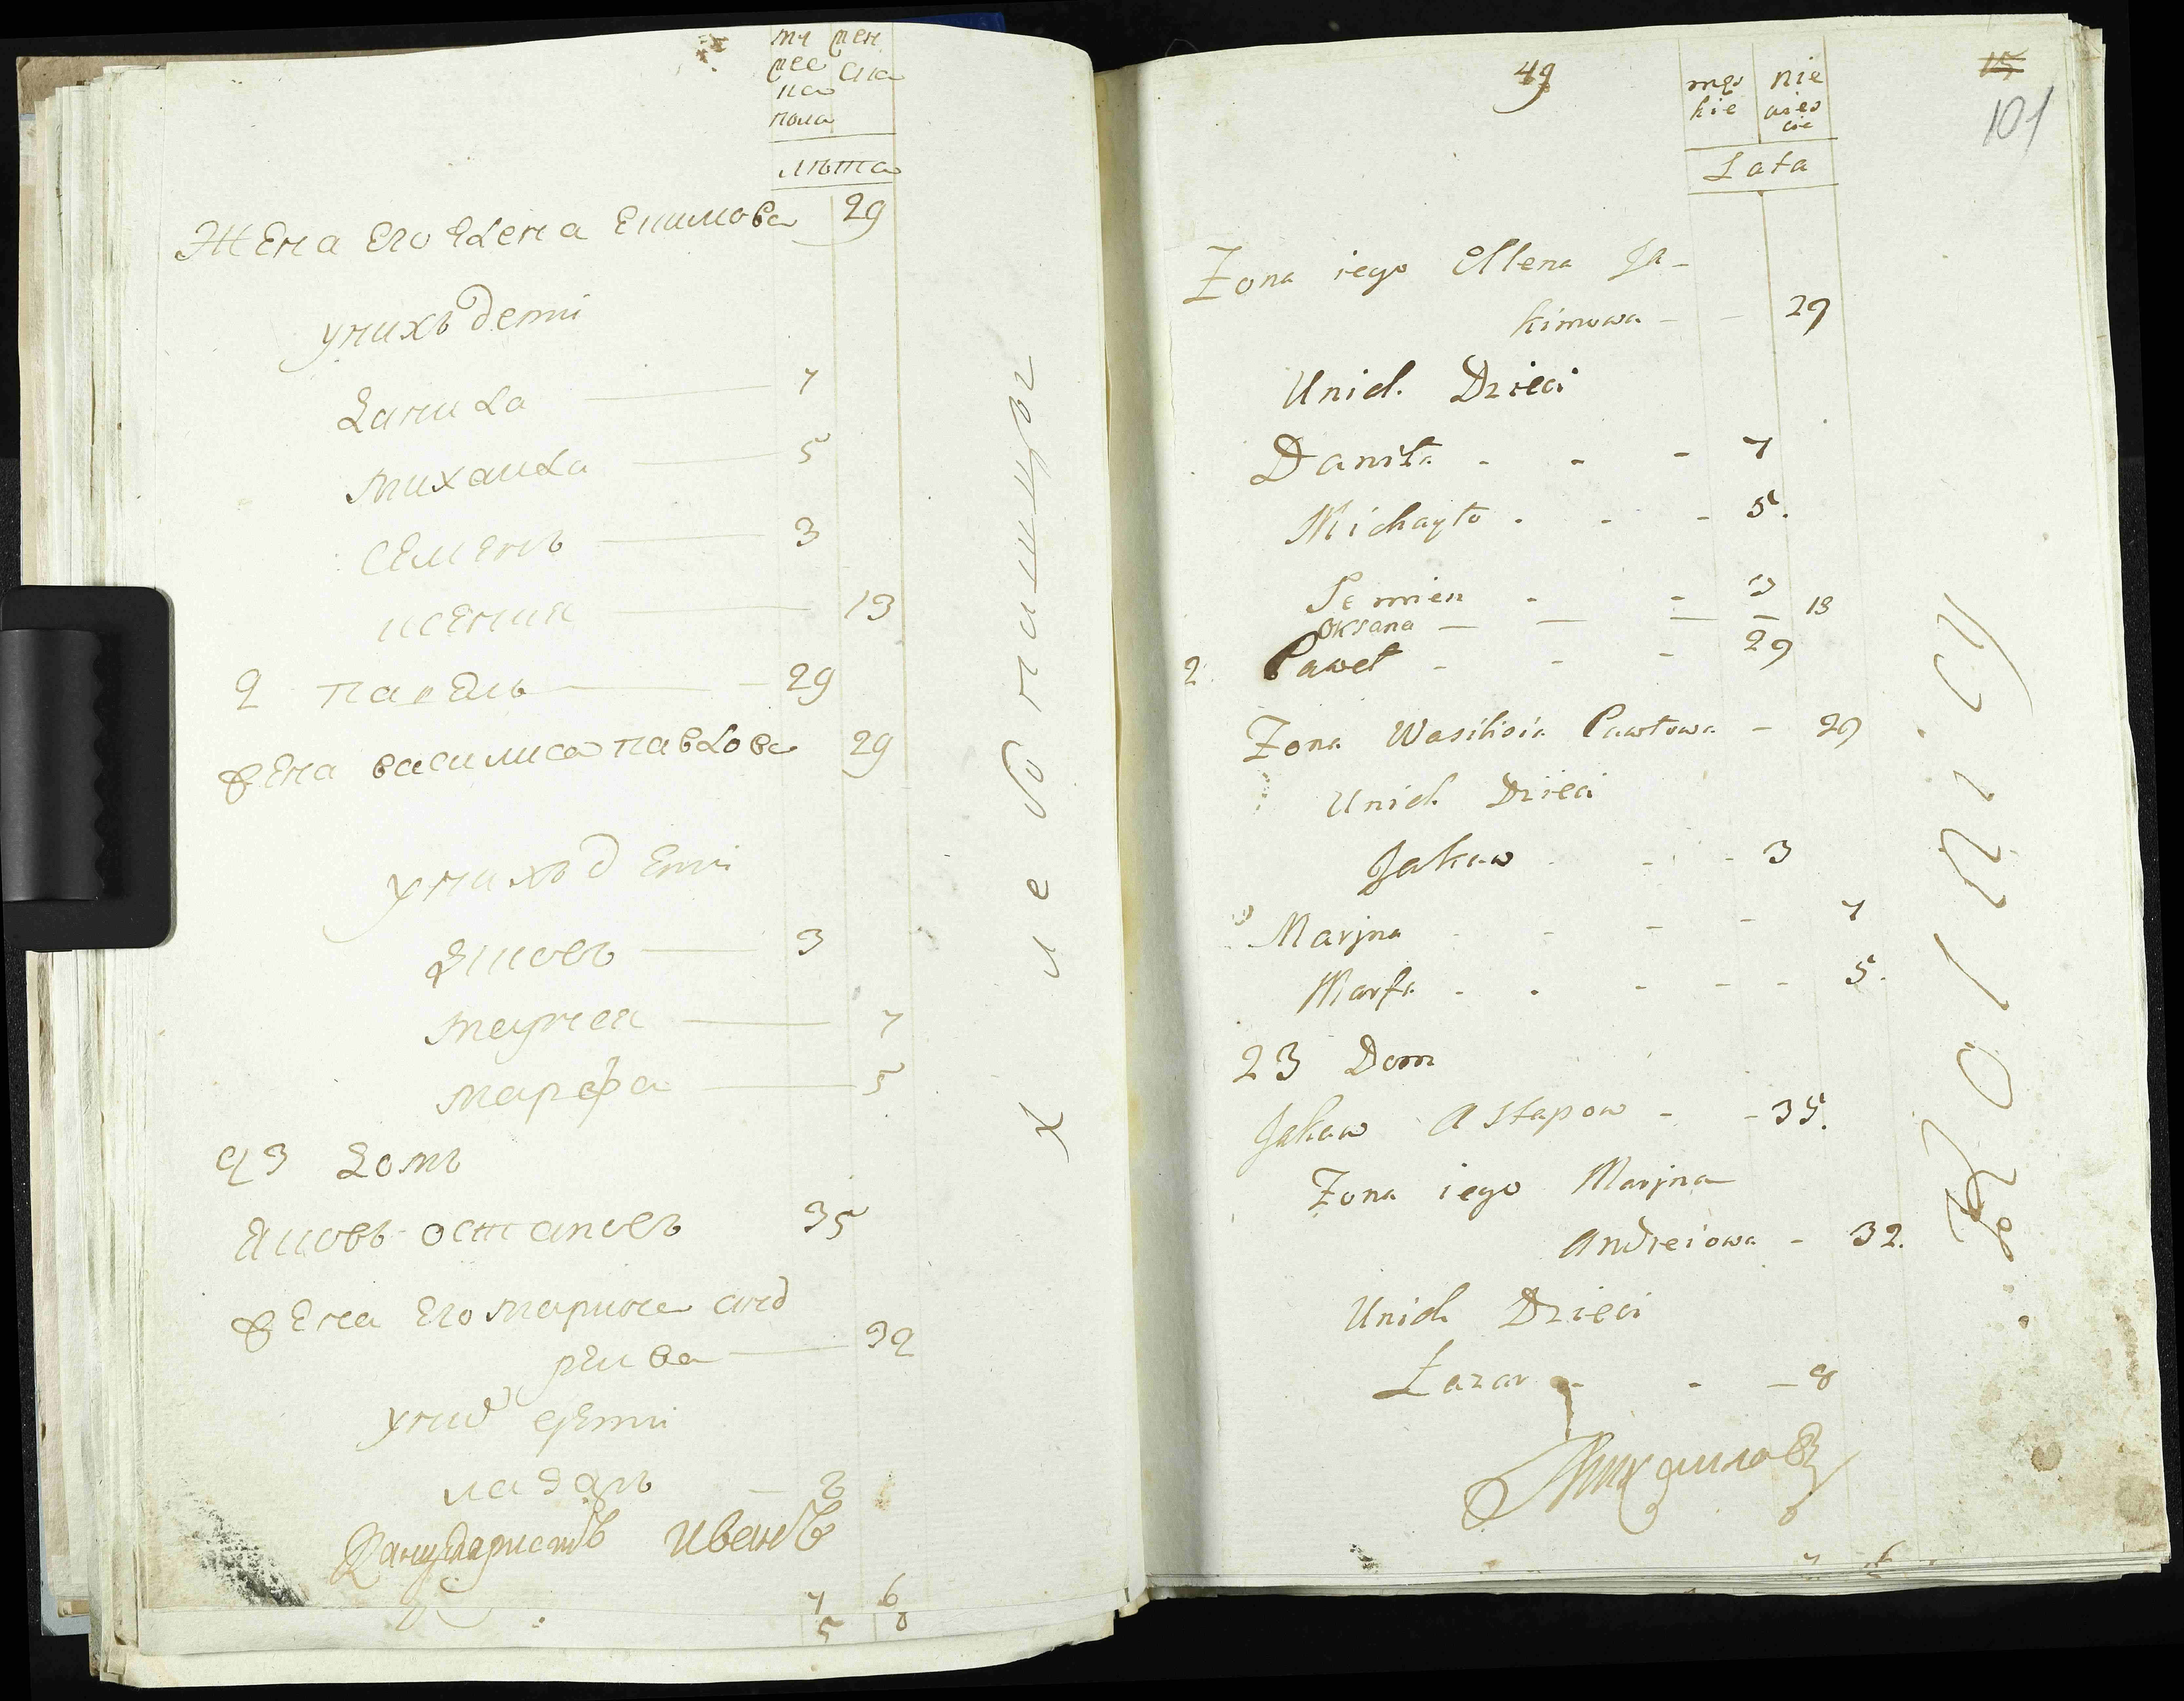 му жен
жес ска
ка
пола
лѣта
Жена его Елена Екимова 29
у нихъ дети
Данила 7
Михаила 5
Семенъ 3
Ксения 13
2 Павелъ 29
жена василиса павлова 29
у нихъ дети
Яковъ 3
мариea 7
марфа 5
23 Домъ
Яковъ остаповъ 35
жена его марина анд
реива 32
у них дети
лазарь 8
Канцеляристъ Иванъ
7 6
5 8
хлебопашцы
49
15
101
męs nie
kie wies
cie
Lata
Żona iego Ellena Ja-
kimowa - - 29
Unich Dzieci
Daniła - - - 7
Michayło . - - 5.
Semien - - 3
Oksana — — — — 13
2. Paweł - - - 29
Żona Wasilisia Pawłowa - 29
Unich Dzieci
Jakow - - 3
Maryna - - - - 7
Marfa - . - - - 5.
23 Dom
Jakow Astapow - - 35.
Żona iego Maryna
Andreiowa - 32.
Unich Dzieci
Łazar - - - 8
Михаиловъ